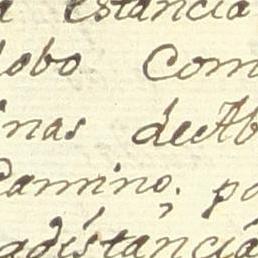 estancia
lobo Com
inas de Ab
Camino; po
distancia